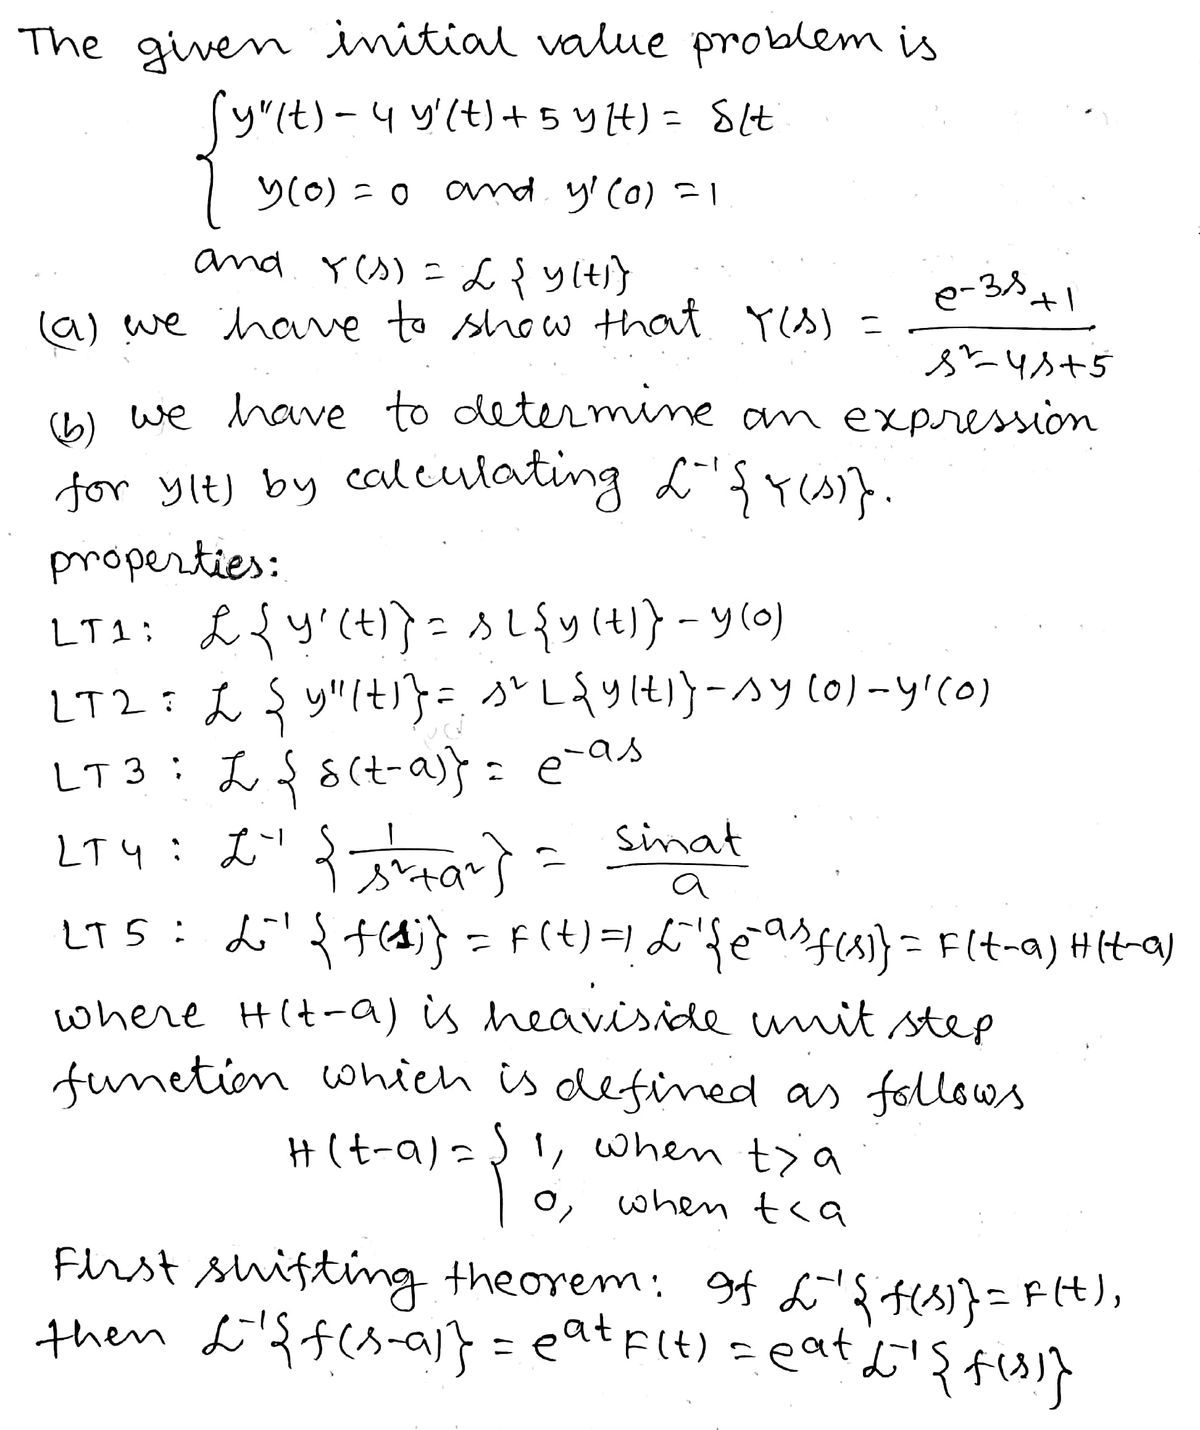 The given initial value problem is
y''(t) - 4 y'(t) + 5 y(t) = δ(t
y(0) = 0 and y'(0) = 1
and Y(s) = ℒ{y(t)}
(a) we have to show that Y(s) = (e^{-3s}+1)/(s²-4s+5)
(b) we have to determine an expression
for y(t) by calculating ℒ⁻¹{Y(s)}.
properties:
LT1: ℒ{y'(t)} = sL{y(t)} - y(0)
LT2: ℒ{y''(t)} = s²L{y(t)} - sy(0) - y'(0)
LT3: ℒ{δ(t-a)} = e^{-as}
LT4: ℒ⁻¹{1/(s²+a²)} = sinat/a
LT5: ℒ⁻¹{f(s)} = F(t) ⇒ ℒ⁻¹{e^{-as}f(s)} = F(t-a) H(t-a)
where H(t-a) is heaviside unit step
function which is defined as follows
H(t-a) = { 1, when t>a
0, when t<a
First shifting theorem: If ℒ⁻¹{f(s)} = F(t),
then ℒ⁻¹{f(s-a)} = e^{at}F(t) = e^{at}ℒ⁻¹{f(s)}